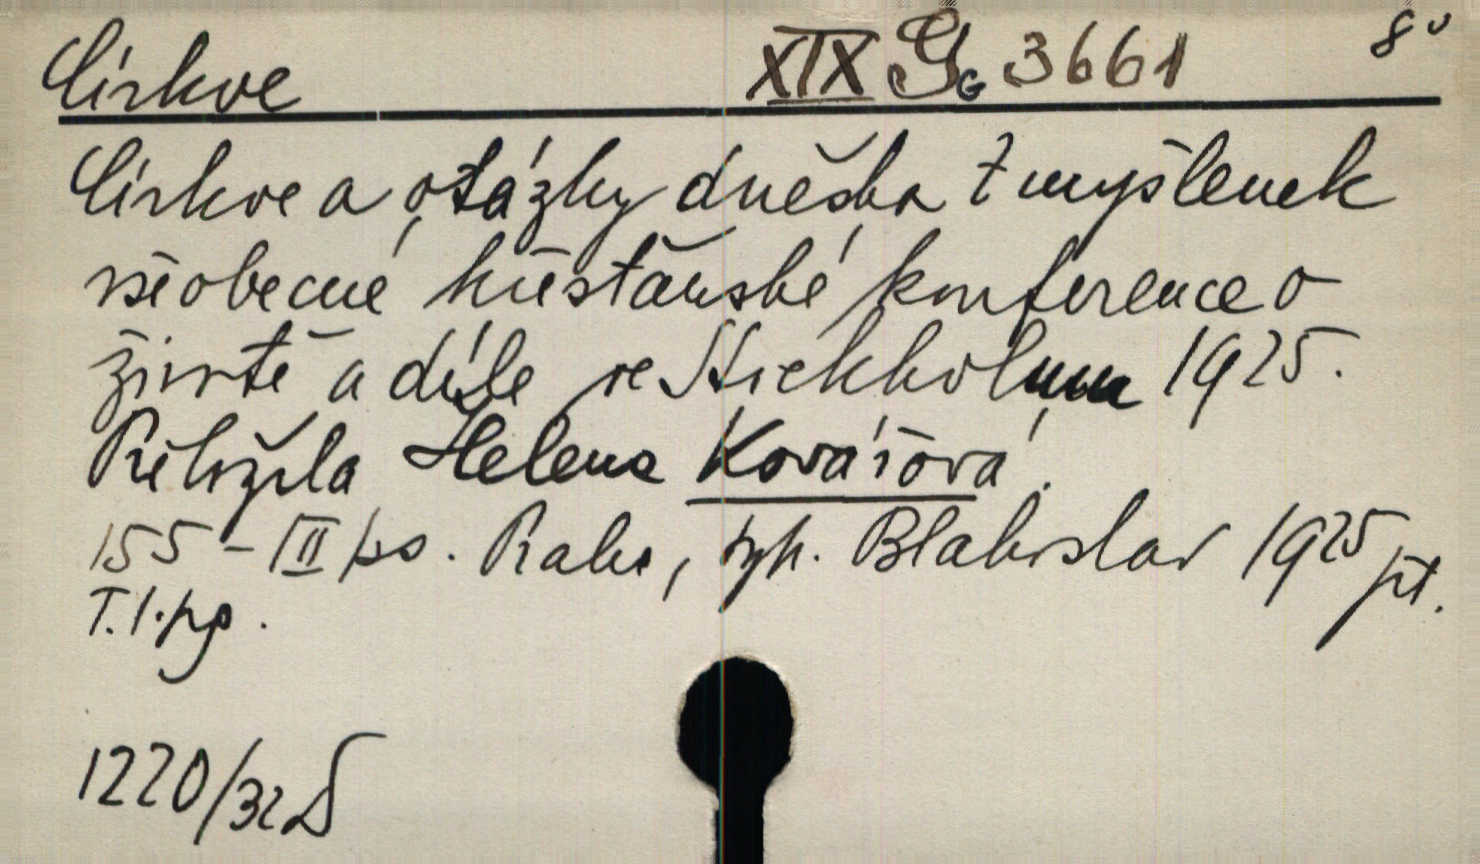 Církve XIX Gg 3661 8°
Církve a otázky dneška Z myšlenek
všeobecné křesťanské konference o
životě a díle ve Stockholmu 1925.
Přeložila Helena Kovářová.
155 - III ps. Praha, typ. Blahoslav 1925 pt.
T. l. pg.
1220/32 D